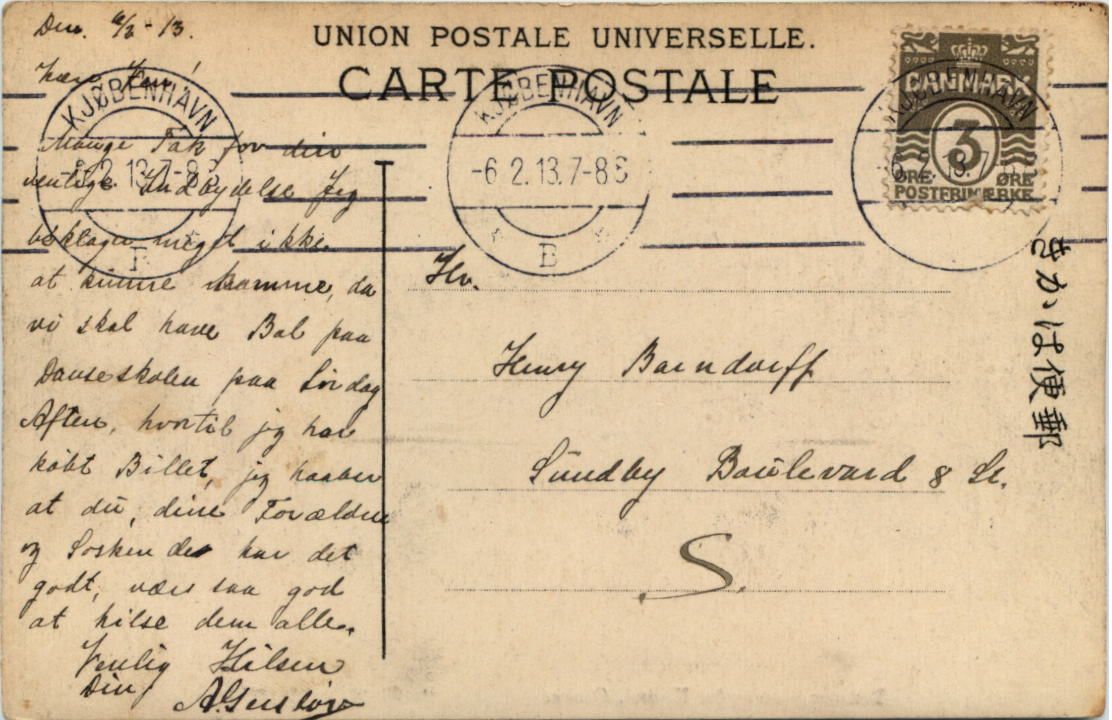 Den. 6/2 - 13.
UNION POSTALE UNIVERSELLE.
CARTE POSTALE
Kære Hen !
KJØBENHAVN
6.2.13.7-8
B
KJØBENHAVN
-6.2.13.7-8
B
KJØBENHAVN
DANMARK
3
ØRE ØRE
POSTFRIMÆRKE
きかは便郵
Mange Tak for din
venlige Indbydelse Jeg
beklager meget ikke
at kunne komme, da
vi skal have Bal paa
Danseskolen paa Lørdag
Aften, hvortil jeg har
købt Billet, jeg haaber
at du, dine Forældre
og Søskende har det
godt, vær saa god
at hilse dem alle.
Venlig Hilsen
Din
Hr.
Henry Barndorff
Sundby Boulevard 8 St.
S.